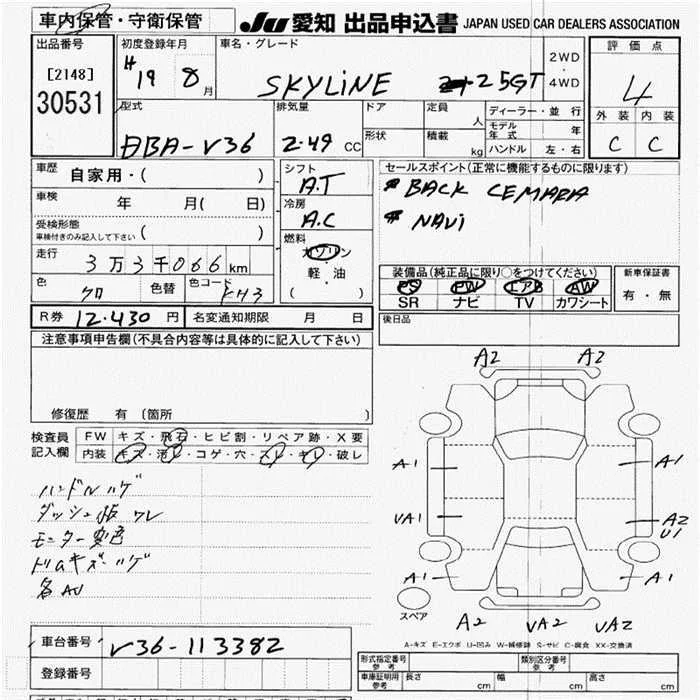 車内保管・守衛保管
JU 愛知 出品申込書 JAPAN USED CAR DEALERS ASSOCIATION
出品番号
[2148]
30531
初度登録年月
H 19 8 月
車名・グレード
SKYLINE 25GT
2WD
・
4WD
評価点
4
外装 内装
C C
型式
DBA-V36
排気量
2.49 CC
ドア
形状
定員
人
積載
kg
ディーラー・並行
モデル年式 年
ハンドル 左・右
車歴 自家用・( )
車検 年 月( 日)
受検形態
車検付きのみ記入して下さい ( )
走行 3万3千066km
色 クロ 色替 色コード KH3
シフト
A.T
冷房
A.C
燃料
ガソリン
軽・油
( )
セールスポイント(正常に機能するものに限ります)
BACK CEMARA
NAVi
装備品(純正品に限り○をつけてください)
PS PW エアB AW
SR ナビ TV カワシート
新車保証書
有・無
後日品
R券 12.430 円 名変通知期限 月 日
注意事項申告欄(不具合内容等は具体的に記入して下さい)
修復歴 有 [箇所 ]
検査員記入欄
FW キズ・飛石・ヒビ割・リペア跡・X要
内装 キズ・汚レ・コゲ・穴・スレ・キレ・破レ
ハンドルハゲ
ダッシュ板ワレ
モニター変色
ドリムキズ・ハゲ
A2 A2
A1 A1
VA1 A2
U1
A1 A1
スペア
A2 VA2 VA2
A-キズ E-エクボ U-凹み W-補修跡 S-サビ C-腐食 XX-交換済
車台番号 V36-113382
登録番号
形式指定番号 参考
類別区分番号 参考
車庫証明用 参考 長さ cm 幅 cm 高さ cm